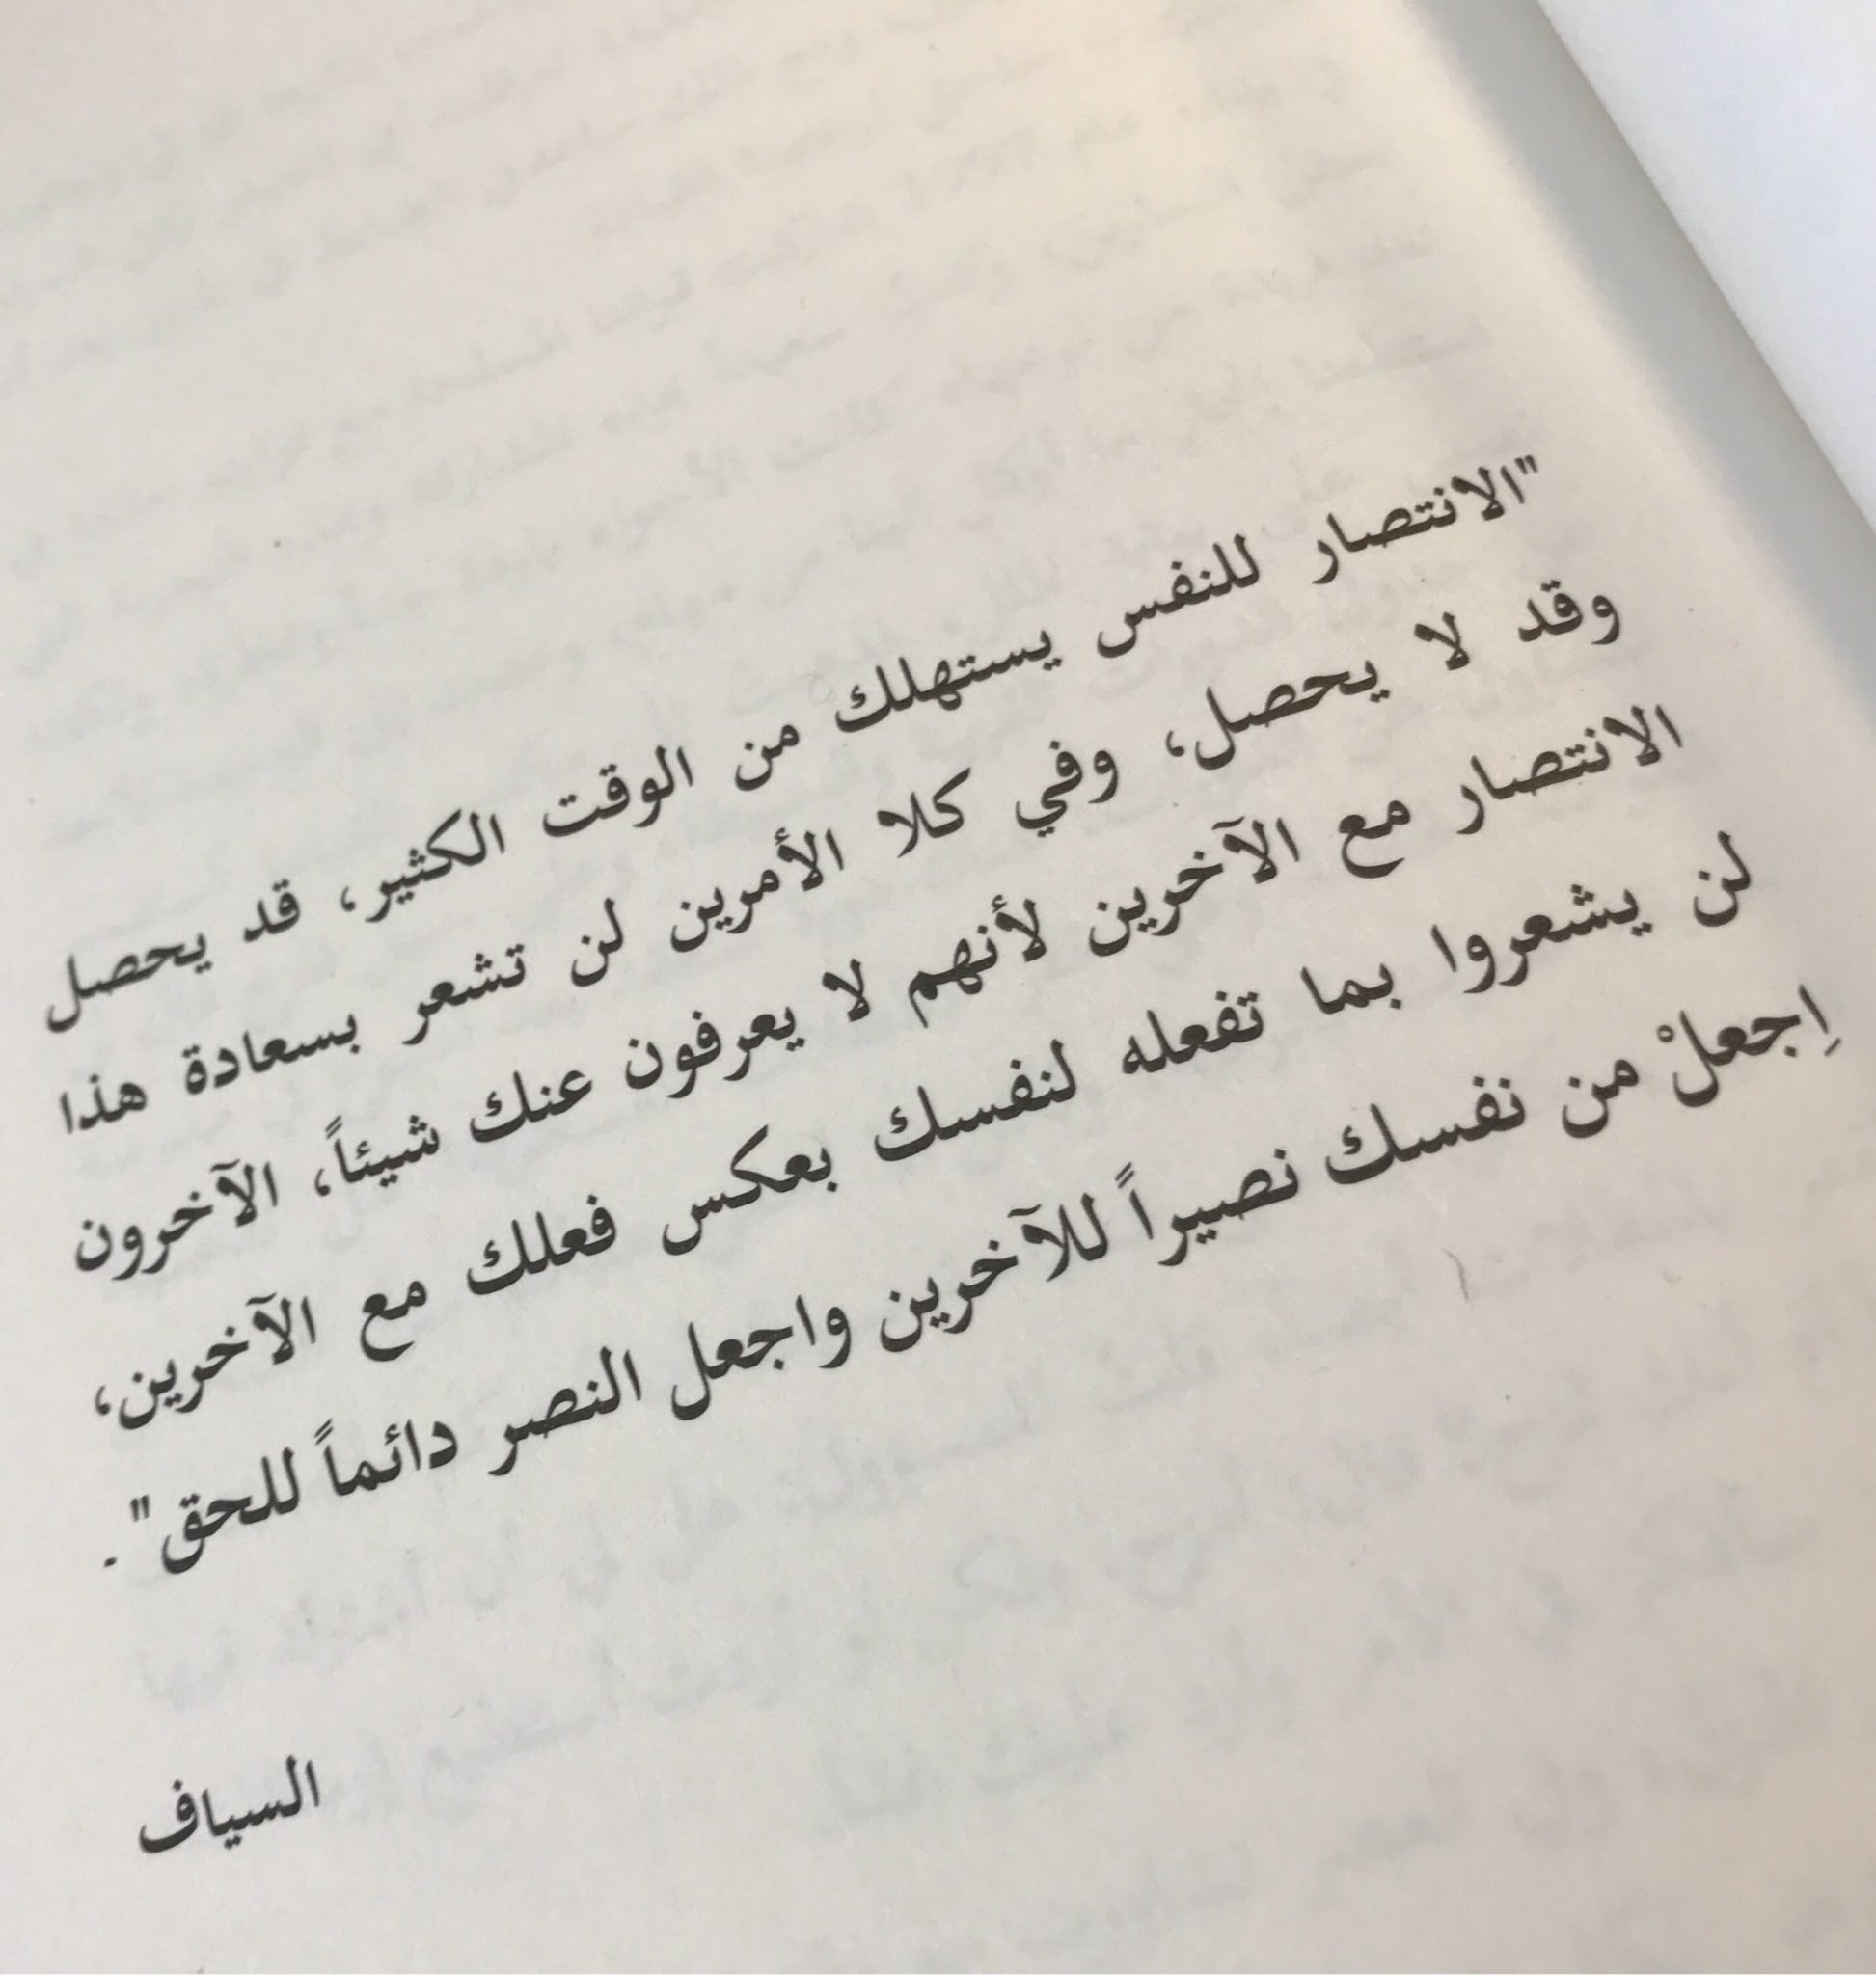 "الانتصار للنفس يستهلك من الوقت الكثير، قد يحصل
وقد لا يحصل، وفي كلا الأمرين لن تشعر بسعادة هذا
الانتصار مع الآخرين لأنهم لا يعرفون عنك شيئاً، الآخرون
لن يشعروا بما تفعله لنفسك بعكس فعلك مع الآخرين،
اِجعلْ من نفسك نصيراً للآخرين واجعل النصر دائماً للحق".
السياف